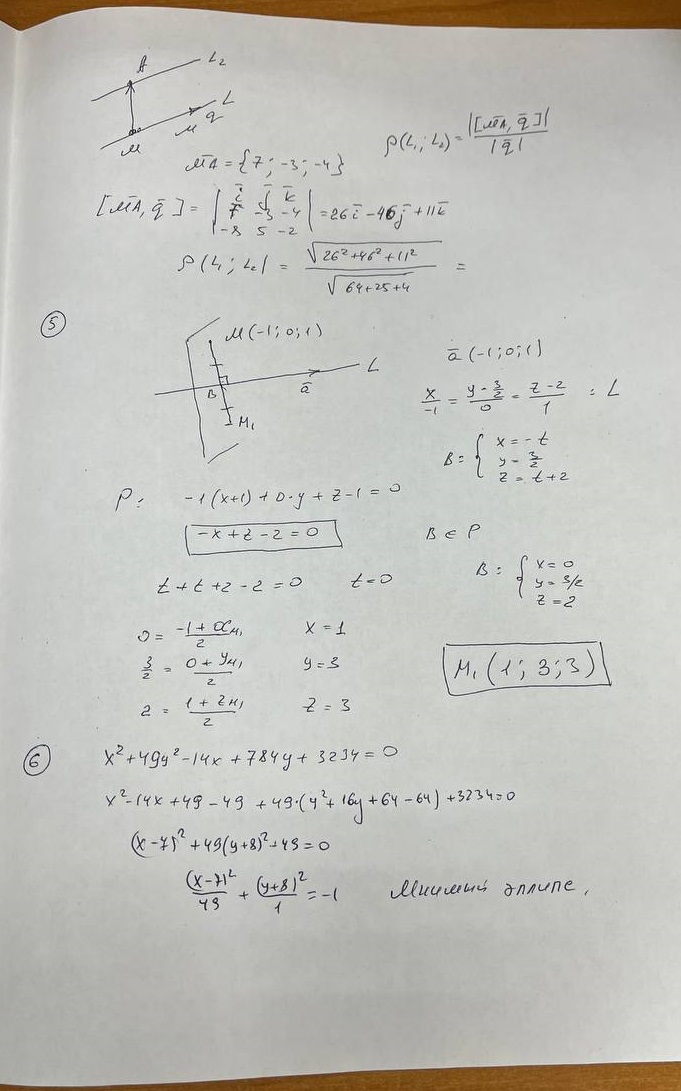 A L₂
L
M q
M
ρ(L₁; L₂) = |[M̄A, q̄]| / |q̄|
M̄A = {7; -3; -4}
[M̄A, q̄] = | ī j̄ k̄ |
| 7 -3 -4 | = 26ī - 46j̄ + 11k̄
| -8 5 -2 |
ρ(L₁; L₂) = √(26²+46²+11²) / √(64+25+4) =
5
M(-1; 0; 1)
L
ā
B
M₁
ā(-1; 0; 1)
x/-1 = (y - 3/2)/0 = (z-2)/1 : L
B = { x = -t
y - 3/2
z = t+2
P: -1(x+1) + 0·y + z - 1 = 0
-x + z - 2 = 0
B ∈ P
t + t + 2 - 2 = 0 t = 0
B: { x = 0
y = 3/2
z = 2
0 = (-1 + x_M₁)/2 x = 1
3/2 = (0 + y_M₁)/2 y = 3
2 = (1 + z_M₁)/2 z = 3
M₁ (1; 3; 3)
6
x² + 49y² - 14x + 784y + 3234 = 0
x² - 14x + 49 - 49 + 49·(y² + 16y + 64 - 64) + 3234 = 0
(x - 7)² + 49(y+8)² + 49 = 0
(x-7)²/49 + (y+8)²/1 = -1 Мнимый эллипс.